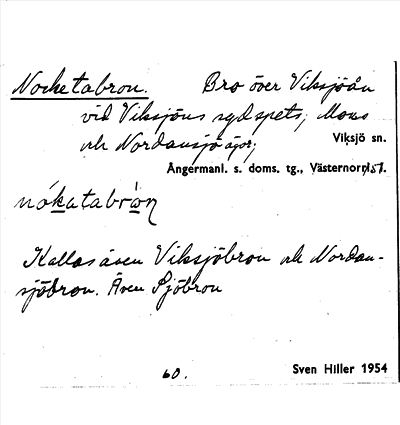 Nocketabron. Bro över Viksjöån
vid Viksjöns sydspets; Mons
och Nordansjö ägor;
Viksjö sn.
Ångermanl. s. doms. tg., Västernorrl.
nókatabròn
Kallas även Viksjöbron och Nordan-
sjöbron. Även Sjöbron
60.
Sven Hiller 1954